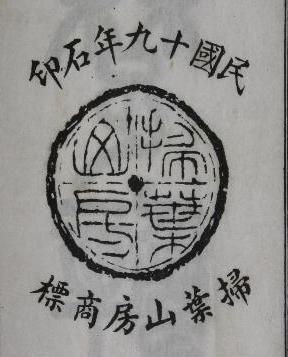 民國十九年石印
掃葉山房
掃葉山房商標